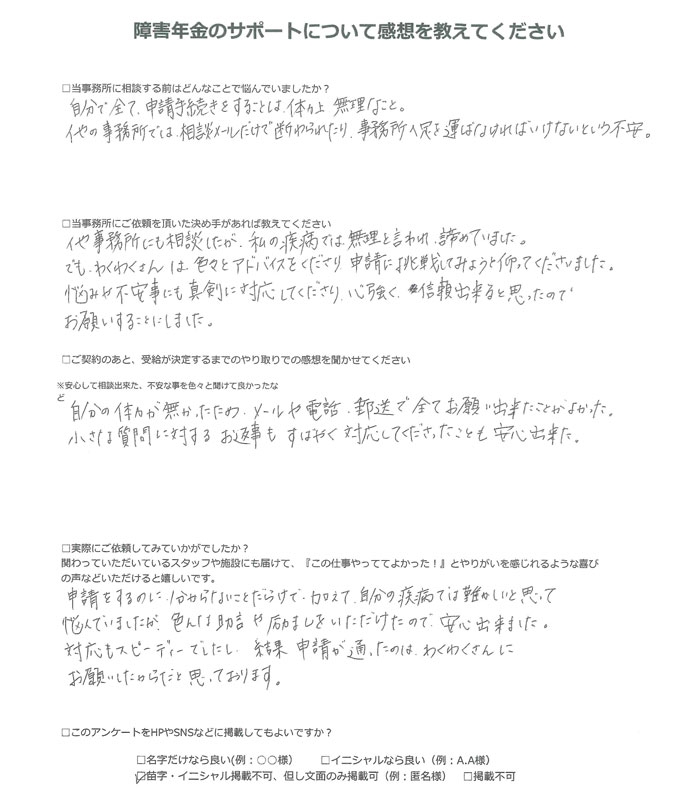 障害年金のサポートについて感想を教えてください
□当事務所に相談する前はどんなことで悩んでいましたか？
自分で全て、申請手続きをすることは、体力上 無理なこと。
他の事務所では、相談メールだけで断わられたり、事務所へ足を運ばなければいけないという不安。
□当事務所にご依頼を頂いた決め手があれば教えてください
他事務所にも相談したが、私の疾病では無理と言われ、諦めていました。
でも、わくわくさんは色々とアドバイスをくださり、申請に挑戦してみようと仰ってくださいました。
悩みや不安事にも真剣に対応してくださり、心強く、信頼出来ると思ったので
お願いすることにしました。
□ご契約のあと、受給が決定するまでのやり取りでの感想を聞かせてください
※安心して相談出来た、不安な事を色々と聞けて良かったな
ど
自分の体力が無かったため、メールや電話、郵送で全てお願い出来たことがよかった。
小さな質問に対するお返事もすばやく対応してくださったことも安心出来た。
□実際にご依頼してみていかがでしたか？
関わっていただいているスタッフや施設にも届けて、『この仕事やっててよかった！』とやりがいを感じれるような喜び
の声などいただけると嬉しいです。
申請をするのに、分からないことだらけで、加えて、自分の疾病では難かしいと思って
悩んでいましたが、色んな助言や励ましをいただけたので、安心出来ました。
対応もスピーディーでしたし、結果 申請が通ったのは、わくわくさんに
お願いしたからだと思っております。
□このアンケートをHPやSNSなどに掲載してもよいですか？
□名字だけなら良い(例：〇〇様) □イニシャルなら良い（例：A.A様）
☑苗字・イニシャル掲載不可、但し文面のみ掲載可（例：匿名様） □掲載不可